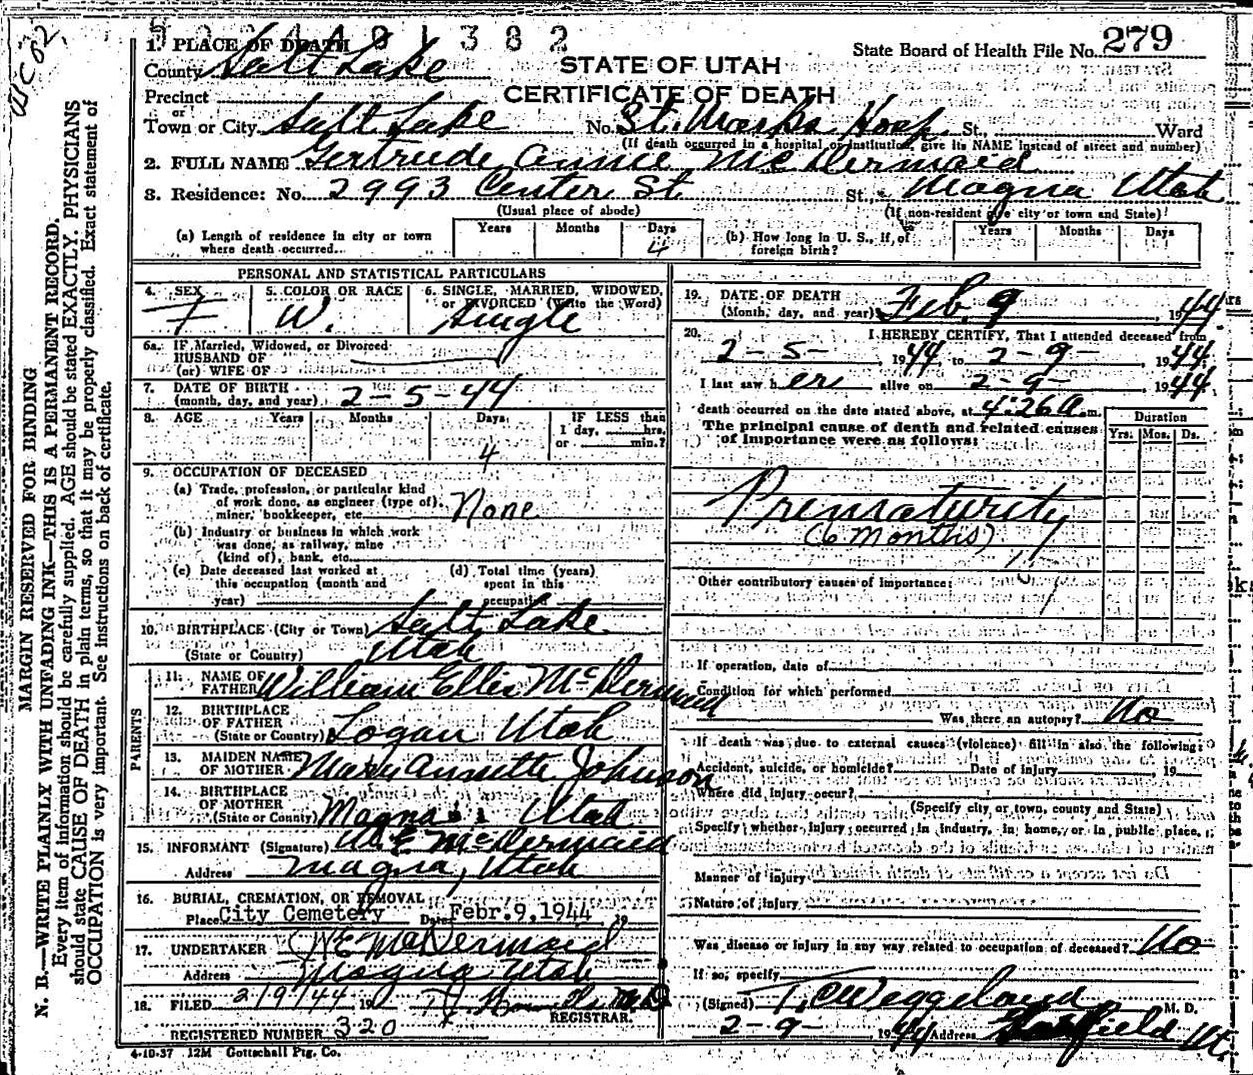 1. PLACE OF DEATH
County Salt Lake
Precinct
or
Town or City Salt Lake No. St. Marks Hosp. St., Ward
(If death occurred in a hospital or institution, give its NAME instead of street and number)
State Board of Health File No. 279
STATE OF UTAH
CERTIFICATE OF DEATH
2. FULL NAME Gertrude Annie McDermaid
3. Residence: No. 2993 Center St St., Magna Utah
(Usual place of abode)
(If non-resident give city or town and State)
(a) Length of residence in city or town
where death occurred
Years Months Days
4
(b) How long in U. S., if of
foreign birth?
Years Months Days
PERSONAL AND STATISTICAL PARTICULARS
4. SEX
F
5. COLOR OR RACE
W.
6. SINGLE, MARRIED, WIDOWED,
or DIVORCED (Write the Word)
Single
6a. IF Married, Widowed, or Divorced
HUSBAND OF
(or) WIFE OF
7. DATE OF BIRTH
(month, day, and year) 2-5-44
8. AGE Years Months Days
4
IF LESS than
1 day, hrs.
or min.?
9. OCCUPATION OF DECEASED
(a) Trade, profession, or particular kind
of work done, as engineer (type of),
miner, bookkeeper, etc. None
(b) Industry or business in which work
was done, as railway, mine
(kind of), bank, etc.
(c) Date deceased last worked at
this occupation (month and
year)
(d) Total time (years)
spent in this
occupation
10. BIRTHPLACE (City or Town) Salt Lake
(State or Country) Utah
PARENTS
11. NAME OF
FATHER William Ellis McDermaid
12. BIRTHPLACE
OF FATHER
(State or Country) Logan Utah
13. MAIDEN NAME
OF MOTHER Mary Annette Johnson
14. BIRTHPLACE
OF MOTHER
(State or Country) Magna Utah
15. INFORMANT (Signature) W E McDermaid
Address Magna, Utah
16. BURIAL, CREMATION, OR REMOVAL
Place City Cemetery Date Febr. 9, 1944 19
17. UNDERTAKER W E McDermaid
Address Magna Utah
18. FILED 2/9/44 19
REGISTRAR.
REGISTERED NUMBER 320
4-10-37 12M Gottschall Ptg. Co.
19. DATE OF DEATH
(Month, day, and year) Feb. 9, 1944
20. I HEREBY CERTIFY, That I attended deceased from
2-5- 1944 to 2-9- 1944
I last saw her alive on 2-9- 1944
death occurred on the date stated above, at 4:26 a.m.
The principal cause of death and related causes
of importance were as follows:
Duration
Yrs. Mos. Ds.
Prematurity
(6 Months)
Other contributory causes of importance:
If operation, date of
Condition for which performed
Was there an autopsy? No
If death was due to external causes (violence) fill in also the following:
Accident, suicide, or homicide? Date of injury 19
Where did injury occur?
(Specify city or town, county and State)
Specify whether injury occurred in industry, in home, or in public place.
Manner of injury
Nature of injury
Was disease or injury in any way related to occupation of deceased? No
If so, specify
(Signed) T. C. Weggeland M. D.
2-9- 1944 Address Garfield Ut.
MARGIN RESERVED FOR BINDING
N. B.—WRITE PLAINLY WITH UNFADING INK—THIS IS A PERMANENT RECORD.
Every item of information should be carefully supplied. AGE should be stated EXACTLY. PHYSICIANS
should state CAUSE OF DEATH in plain terms, so that it may be properly classified. Exact statement of
OCCUPATION is very important. See instructions on back of certificate.